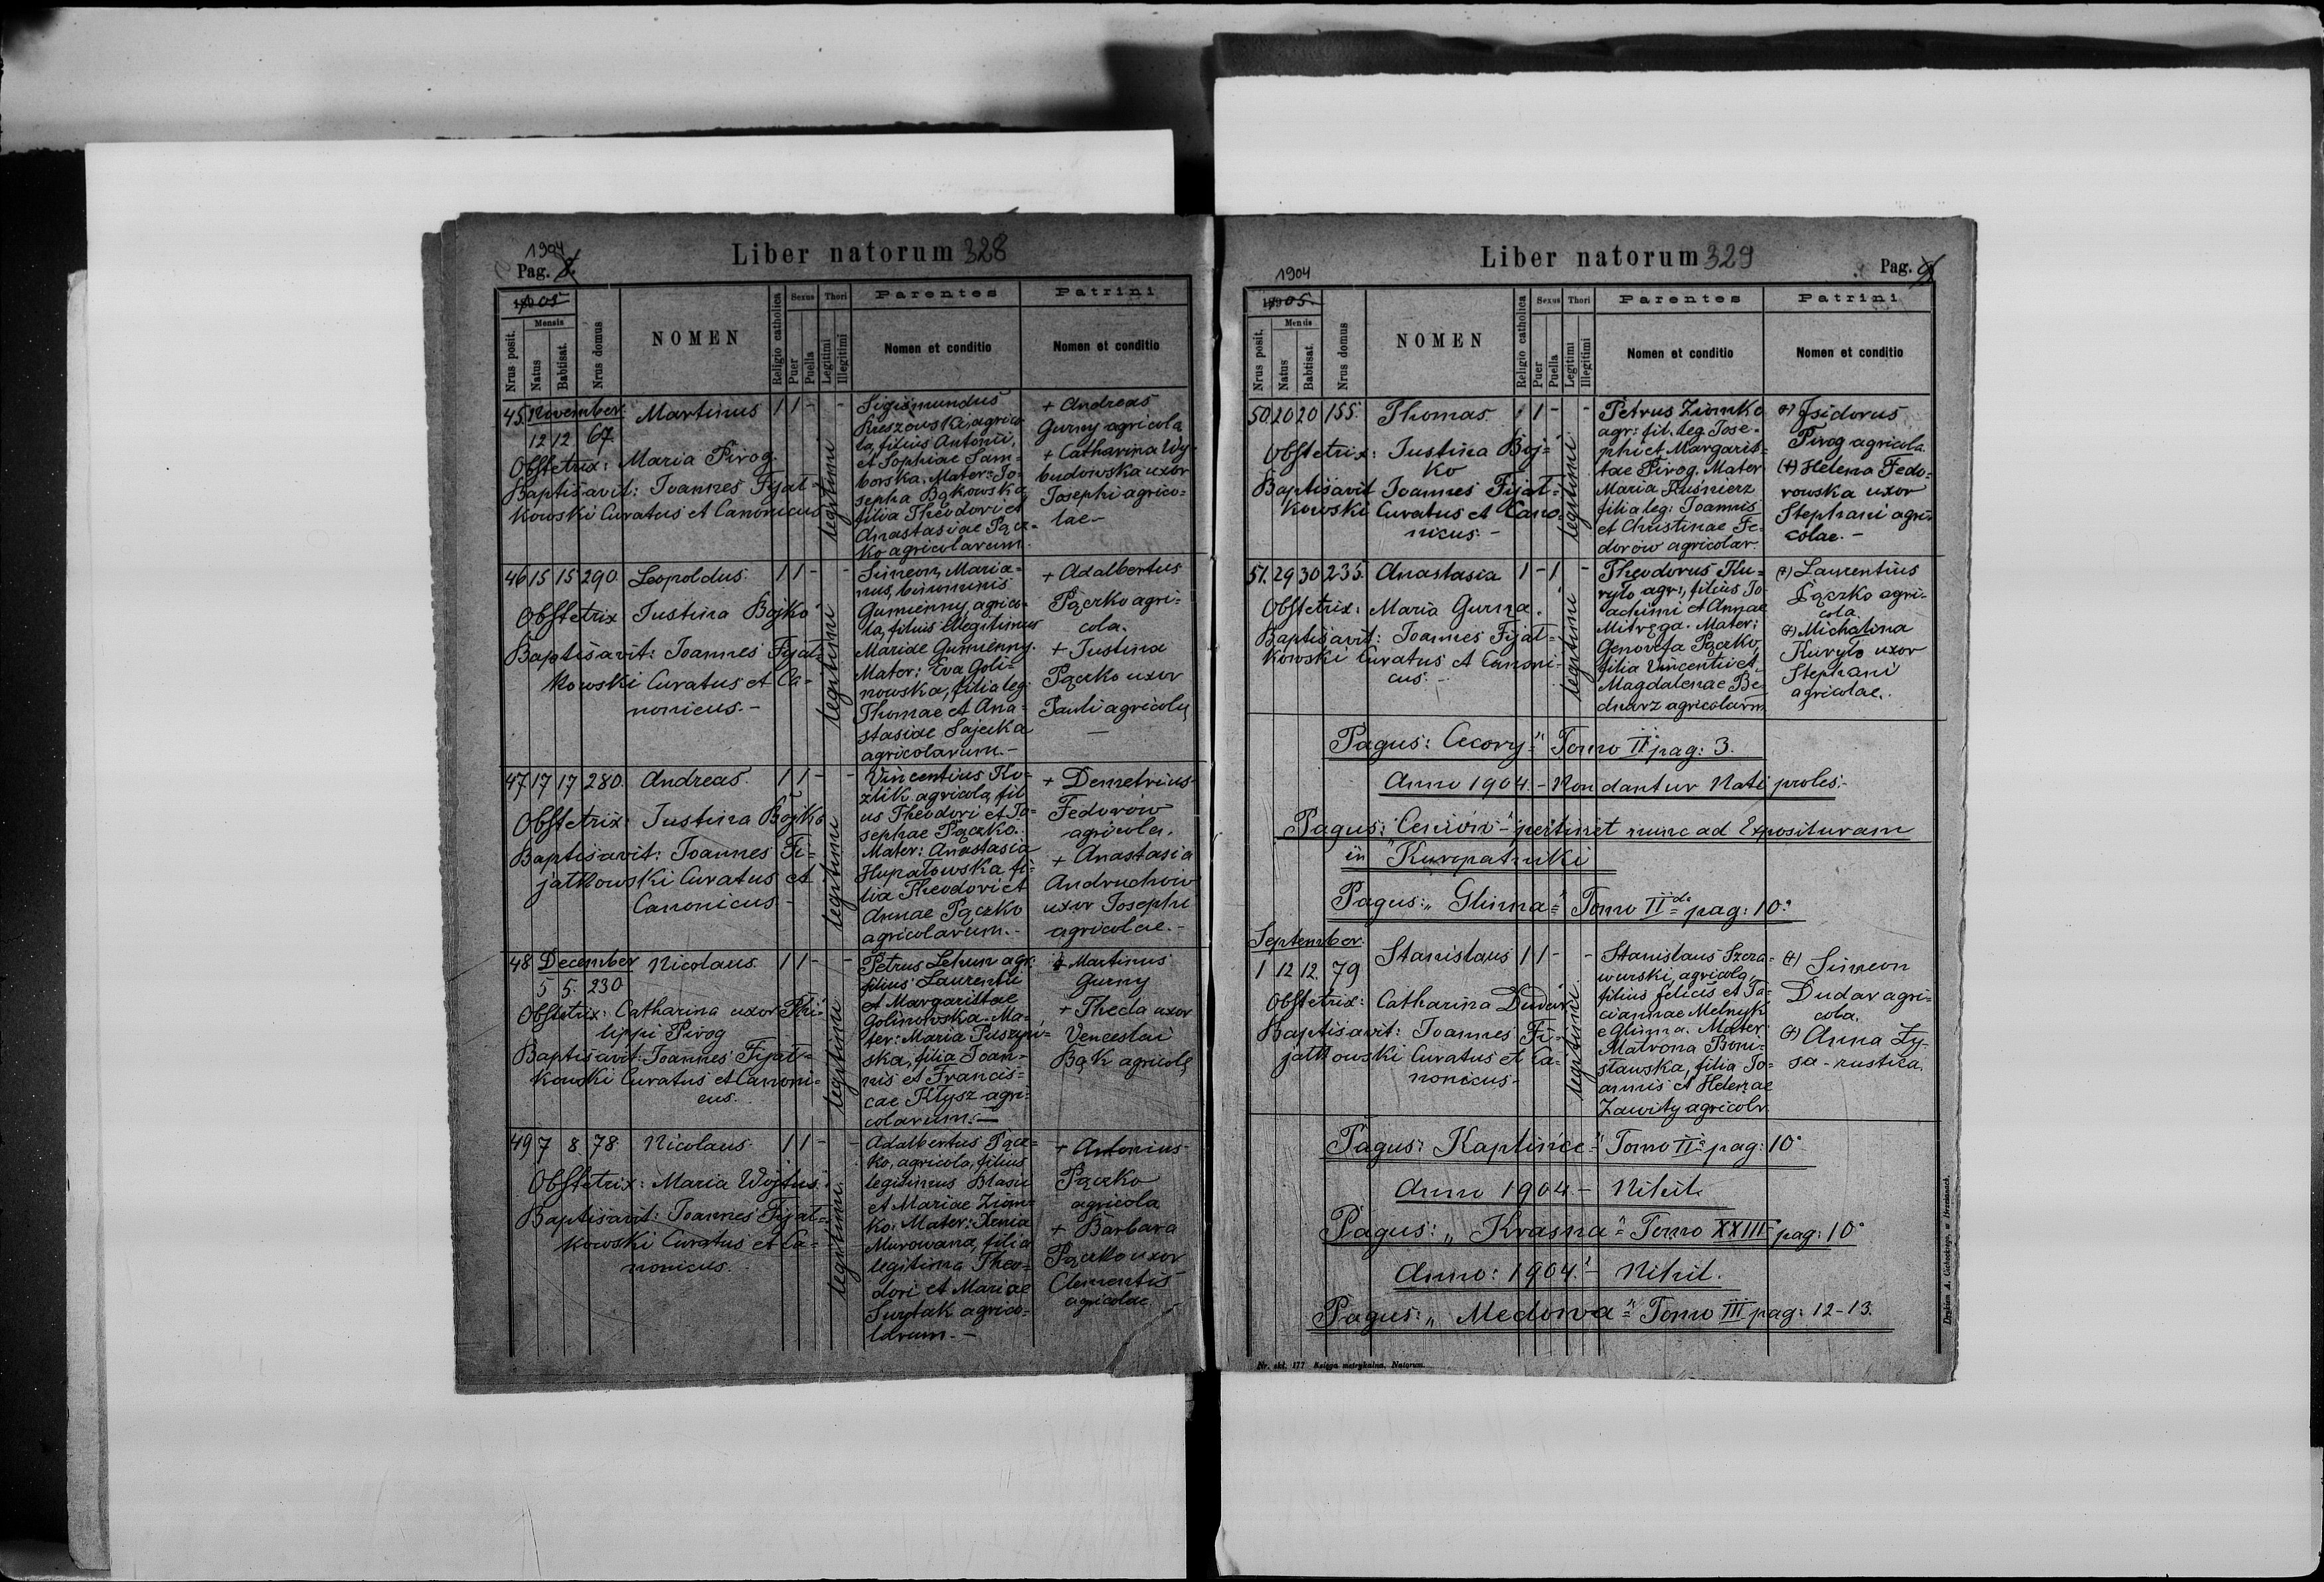 1904
Pag. 8.
Liber natorum 328
1905
Nrus posit.
Mensis
Natus
Babtisat.
Nrus domus
NOMEN
Religio catholica
Sexus
Puer
Puella
Thori
Legitimi
Illegitimi
Parentes
Nomen et conditio
Patrini
Nomen et conditio
45. November. Martinus 1 1 - -
12 12 67.
Obstetrix: Maria Pirog.
Baptisavit: Joannes Fijał=
kowski Curatus et Canonicus
legitimi
Sigismundus
agrico
la, filius Antonii,
et Sophiae Sam=
borska. Mater: Jo=
sepha Bąkowska
filia Theodori et
Anastasiae Pącz=
ko agricolarum.
+ Andreas
Gurny agricola
+ Catharina Wy=
budowska uxor
Josephi agrico=
lae.-
46 15 15 290. Leopoldus. 1 1 - -
Obstetrix Justina Bojko
Baptisavit: Joannes Fijał=
kowski Curatus et Ca=
nonicus.-
legitimi
Simeon, Maria=
nus, binominis
Gumienny, agrico=
la, filius illegitimus
Mariae Gumienny.
Mater: Eva Goli=
nowska, filia leg:
Thomae et Ana=
stasiae Sajecka
agricolarum.-
+ Adalbertus
Pączko agri=
cola.
+ Justina
Pączko uxor
Pauli agricolę
47 17 17 280. Andreas. 1 1 - -
Obstetrix: Justina Bojko
Baptisavit: Joannes Fi=
jałkowski Curatus et
Canonicus -
legitimi
Vincentius Ko=
źlik agricola, fili
us Theodori et Jo=
sephae Pączko.
Mater: Anastasia
Hupałowska fi=
lia Theodori et
Annae Pączko
agricolarum.-
+ Demetrius
Fedorow
agricola.
+ Anastasia
Andruchow
uxor Josephi
agricolae.-
48 December Nicolaus. 1 1 - -
5 5. 230
Obstetrix: Catharina uxor Phi=
lippi Pirog
Baptisavit: Joannes Fijał=
kowski Curatus et Canoni=
cus.
legitimi
Petrus Lehun agr:
filius Laurentii
et Margarittae
Golinowska. Ma=
ter: Maria Puszyń=
ska, filia Joan=
nis et Francis=
cae Kłysz agri=
colarum.-
+ Martinus
Gurny
+ Thecla uxor
Venceslai
Bąk agricolę
49 7 8 78. Nicolaus. 1 1 - -
Obstetrix: Maria Wojtus.
Baptisavit: Joannes Fijał=
kowski Curatus et Ca=
nonicus.
legitimi
Adalbertus Pącz=
ko, agricola, filius
legitimus Blasii
et Mariae Ziom=
ko. Mater: Xenia
Murowana, filia
legitima Theo=
dori et Mariae
Surytak agrico=
larum.-
+ Antonius
Pączko
agricola
+ Barbara
Pączko uxor
Clementis
agricolae
1904
Liber natorum 329
Pag. 9.
1905.
Nrus posit.
Mensis
Natus
Babtisat.
Nrus domus
NOMEN
Religio catholica
Sexus
Puer
Puella
Thori
Legitimi
Illegitimi
Parentes
Nomen et conditio
Patrini
Nomen et conditio
50. 20 20 155. Thomas. 1 1 - -
Obstetrix: Justina Boj=
ko
Baptisavit Joannes Fijał=
kowski Curatus et Cano=
nicus.-
legitimi
Petrus Ziomko
agr: fil. leg. Jose=
phi et Margarit=
tae Pirog. Mater
Maria Kuśnierz
filia leg: Joannis
et Christinae Fe=
dorów agricolar.
(+) Isidorus
Pirog agricola.
(+) Helena Fedo=
rowska uxor
Stephani agri=
colae.-
51. 29 30 235. Anastasia 1 - 1 -
Obstetrix: Maria Gurna.
Baptisavit: Joannes Fijał=
kowski Curatus et Canoni=
cus.-
legitimi
Theodorus Ku=
ryło agr., filius Jo=
achimi et Annae
Mitręga. Mater:
Genovefa Pączko,
filia Vincentii et
Magdalenae Be=
dnarz agricolarm
(+) Laurentius
Pączko agri=
cola
(+) Michalina
Kuryło uxor
Stephani
agricolae.
Pagus: Cecory=" Tomo II pag: 3.
Anno 1904.- Non dantur Nati proles.-
Pagus: "Ceniów"- pertinet nunc ad Exposituram
in "Kuropatniki
Pagus: „Glinna=" Tomo IIdo pag: 10.
September.
1 12 12. 79 Stanislaus 1 1 - -
Obstetrix: Catharina Dudar.
Baptisavit: Joannes Fi=
jałkowski Curatus et Ca=
nonicus-
legitimi
Stanislaus Szcza=
wurski, agricola,
filius felicis et Ta=
ciannae Melnyk
e Glinna. Mater:
Matrona Broni=
stawska, filia Jo=
annis et Helenae
Zawity agricolr.
(+) Simeon
Dudar agri=
cola.
(+) Anna Ły=
sa - rustica.
Pagus: „Kaplińce=" Tomo II pag: 10.
Anno 1904 - Nihil.
Pagus: „Krasna=" Tomo XXIII pag: 10.
Anno: 1904.- Nihil.
Pagus: „Medowa=" Tomo III pag: 12-13.
Nr. skł. 177 Księga metrykalna. Natorum.